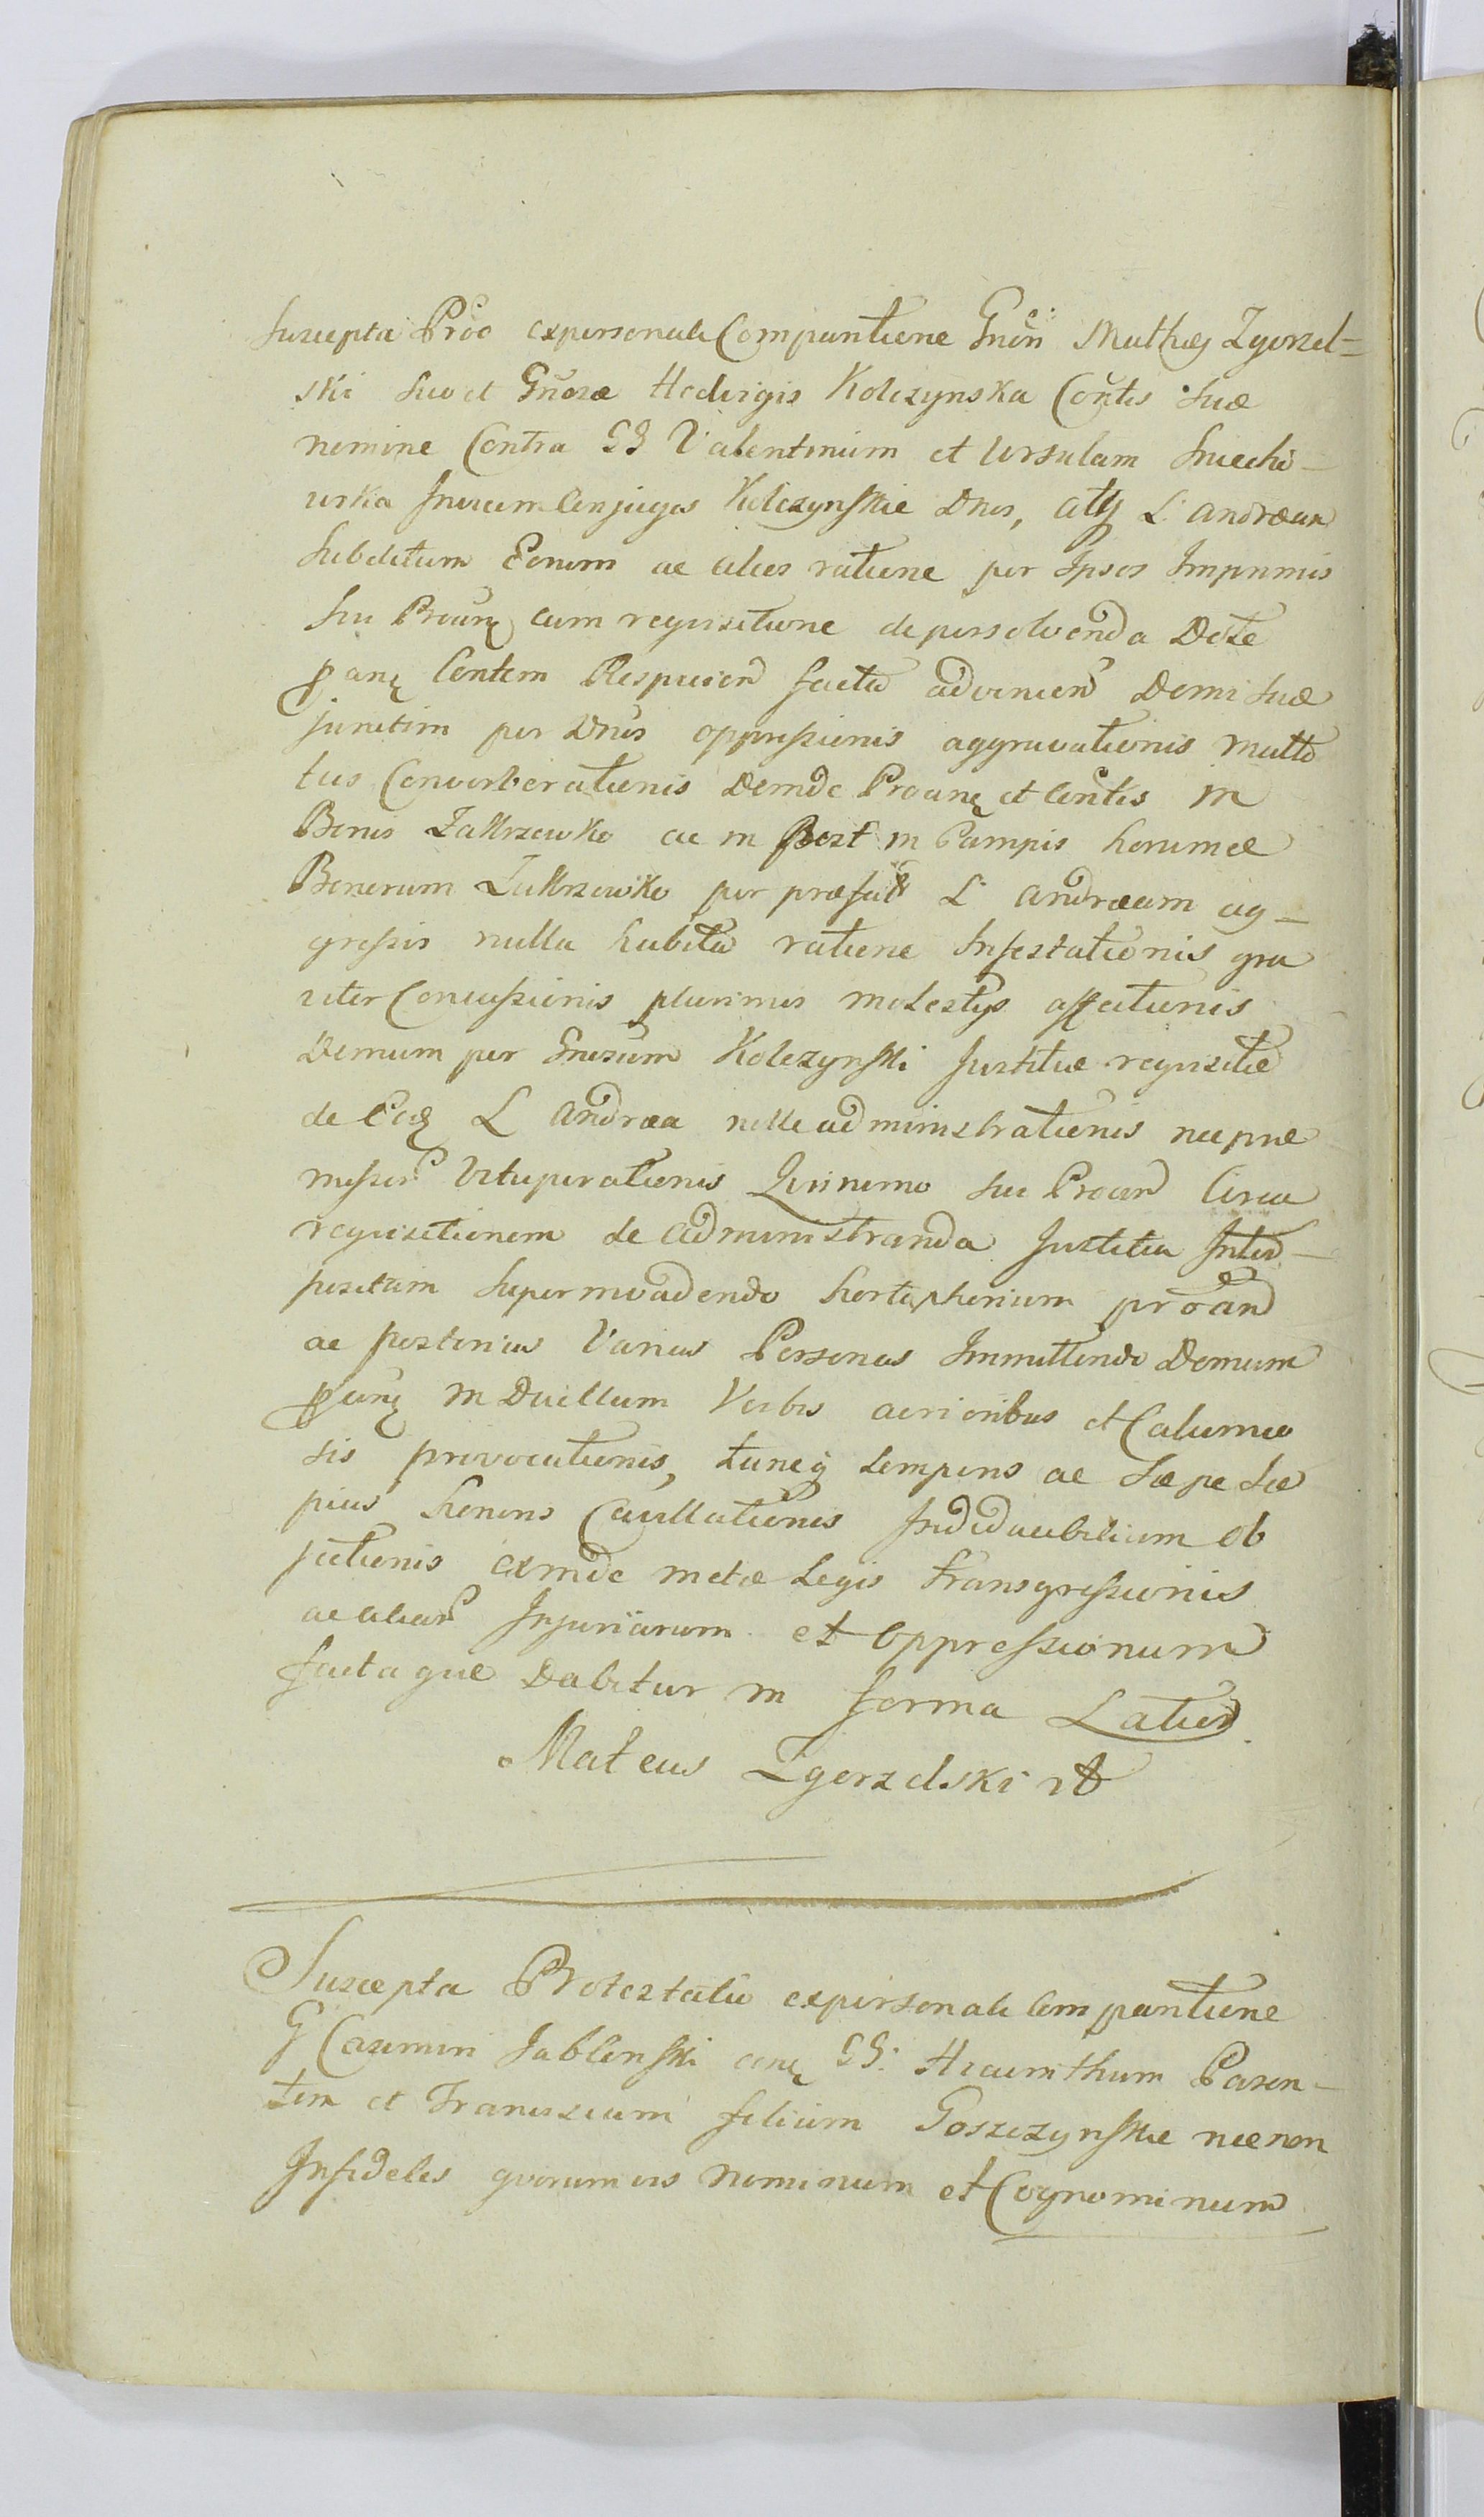 Suscepta Proõ ex personali Comparitione Gnõsi Mathęj Zgorzel=
ski suo et Gnosæ Hedvigis Kolczynska Cõntis suæ
nomine Contra GG Valentinum et Ursulam
Invicem Conjuges Kolczynskie Dnos, atq L Andream
Subditum Eorum ac alios ratione per Ipsos Imprimis
sui cum requisitione de persolvenda Dote
Contem factæ advenien Domi suæ
junctim per Dnos oppressionis aggravationis multo
ties Converberationis Deinde et Contis in
Bonis Zakrzewko ac in Post in Campis horumce
Bonorum Zakrzewko per præfat L Andream ag-
gressis nulla habita ratione Infestationis gra
viter Concussionis plurimis molestys affectionis
Demum per Gnosum Kolczynski Justitiæ requisitæ
de Eoq L Andrea nolle administrationis nec præ
missor Vituperationis Quinimo sui Circa
requisitionem de administranda Justitia Inter-
positam Supermvadendo
ac posterius Varias Personas Immittendo Domum
in Duellum Verbis acrioribus et Calumnio
sis provocationis, tuncq temporis ac sæpe sæ
pius honoris Cavillationis ob
jectionis exinde metæ Legis transgressionis
ac aliar Injuriarum et Oppressionum
facta quæ Dabitur in forma Latior
Mateus Zgorzelski

Suscepta Protestatio ex personali Comparitione
G Casimiri Jablonski GG: Hiacinthum Paren-
tem et Franciscum filium Goszczynskie necnon
Infideles quorumvis nominum et Cognominum